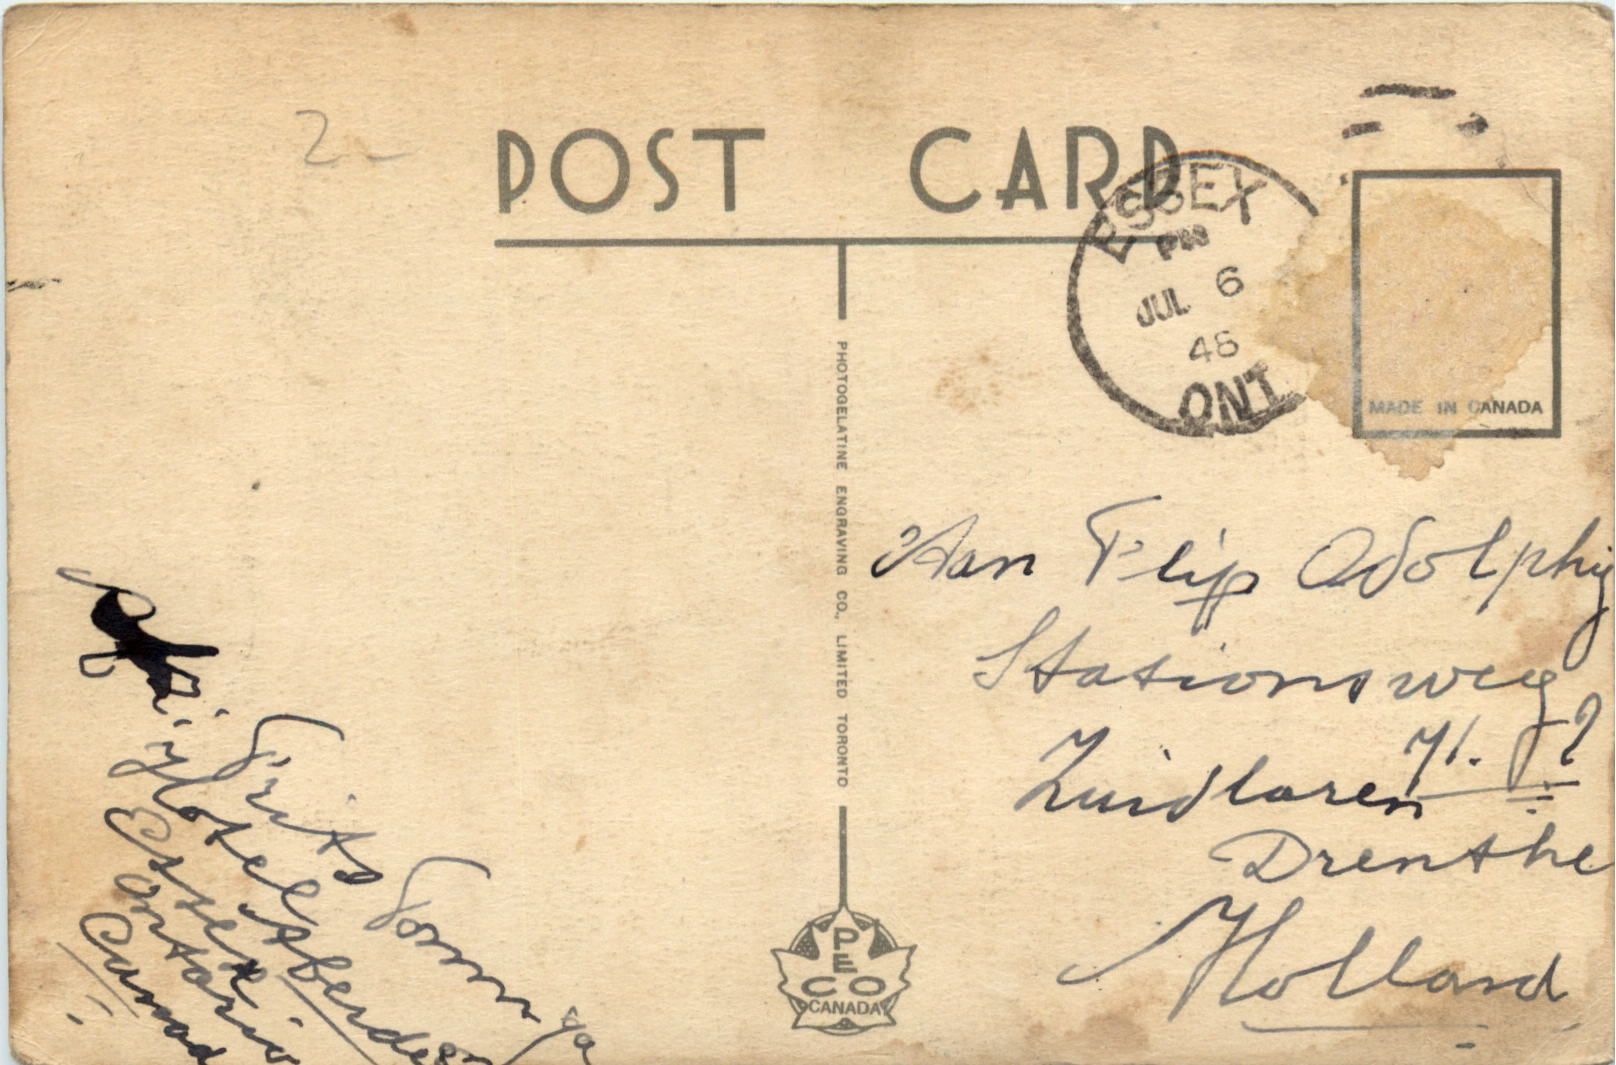 2
POST CARD
ESSEX
PM
JUL 6
48
ONT.
MADE IN CANADA
PHOTOGELATINE ENGRAVING CO., LIMITED TORONTO
PECO
CANADA
Aan Flip Adolphij
Stationsweg
Zuidlaren
Drenthe
Holland
Frits
Hotel Aberdeen
Essex
Ontario
Canada